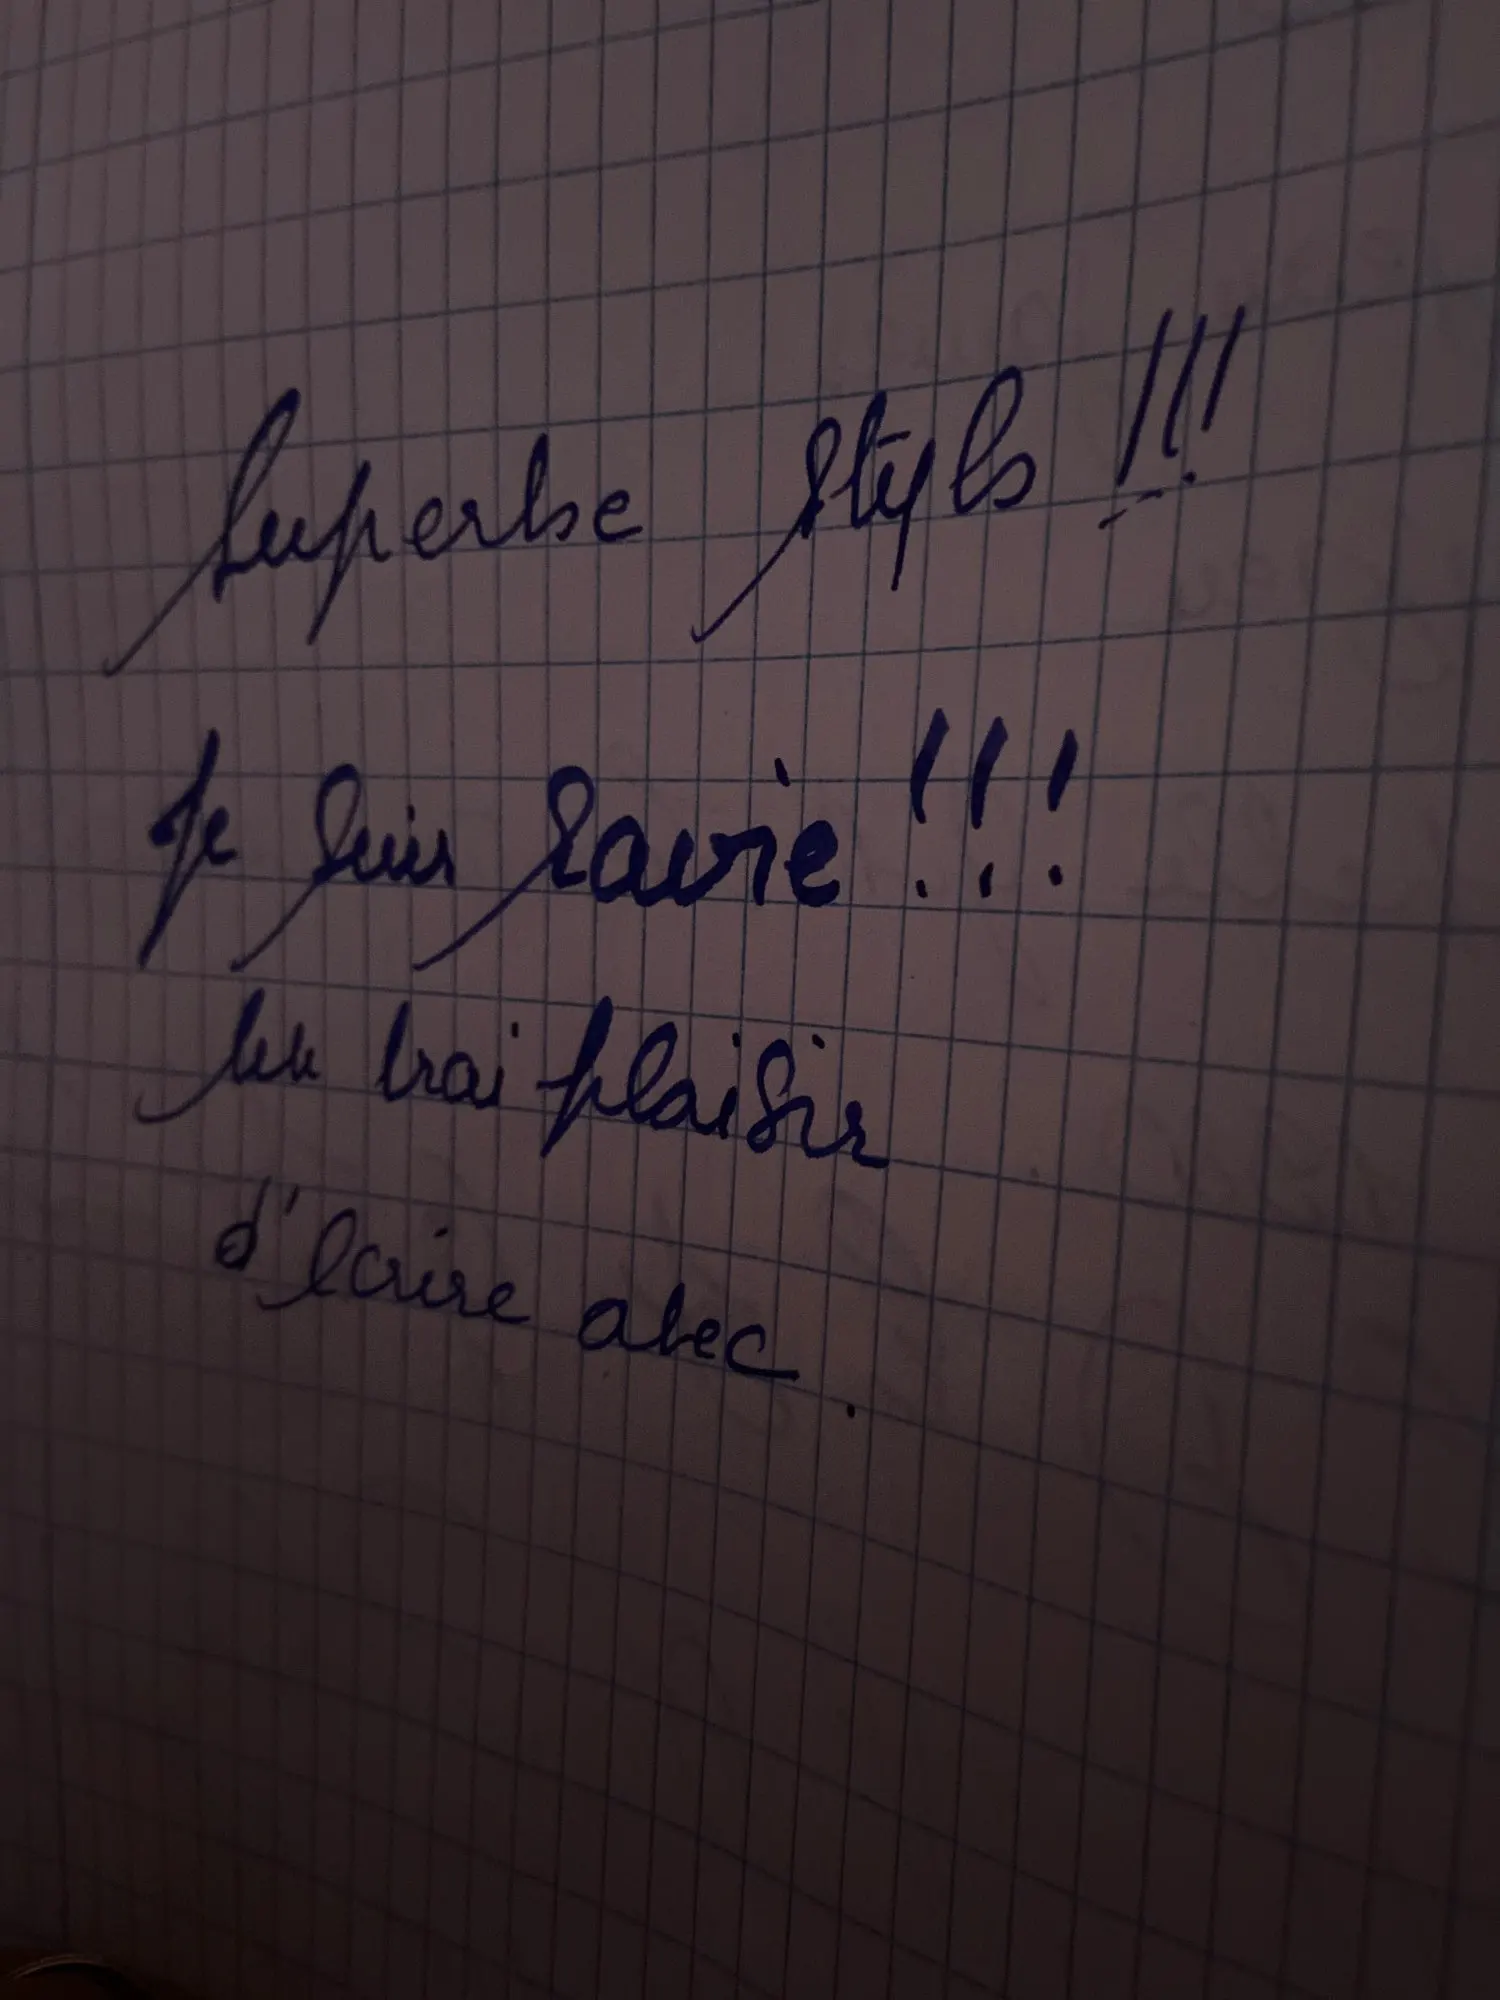 Superbe stylo !!!
Je suis ravie !!!
un vrai plaisir
d'écrire avec .